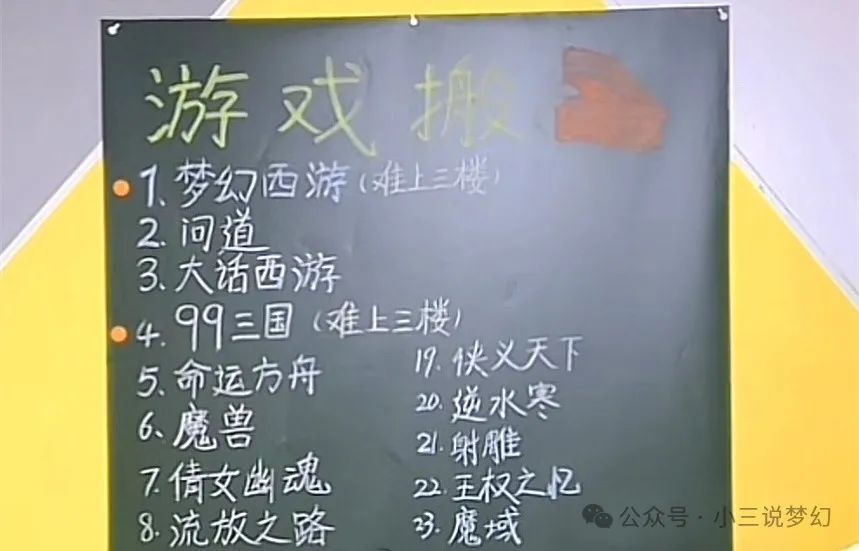 游戏搬
1. 梦幻西游(难上三楼)
2. 问道
3. 大话西游
4. 99三国(难上三楼)
5. 命运方舟
6. 魔兽
7. 倩女幽魂
8. 流放之路
19. 侠义天下
20. 逆水寒
21. 射雕
22. 王权之忆
23. 魔域
公众号·小三说梦幻